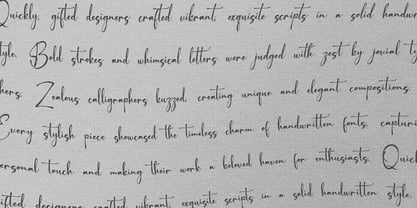 Quickly, gifted designers crafted vibrant, exquisite scripts in a solid handwr
style. Bold strokes and whimsical letters were judged with zest by jovial ty
hers. Zealous calligraphers buzzed, creating unique and elegant compositions.
Every stylish piece showcased the timeless charm of handwritten fonts, capturi
personal touch and making their work a beloved haven for enthusiasts. Quick
gifted designers crafted vibrant, exquisite scripts in a solid handwritten style.